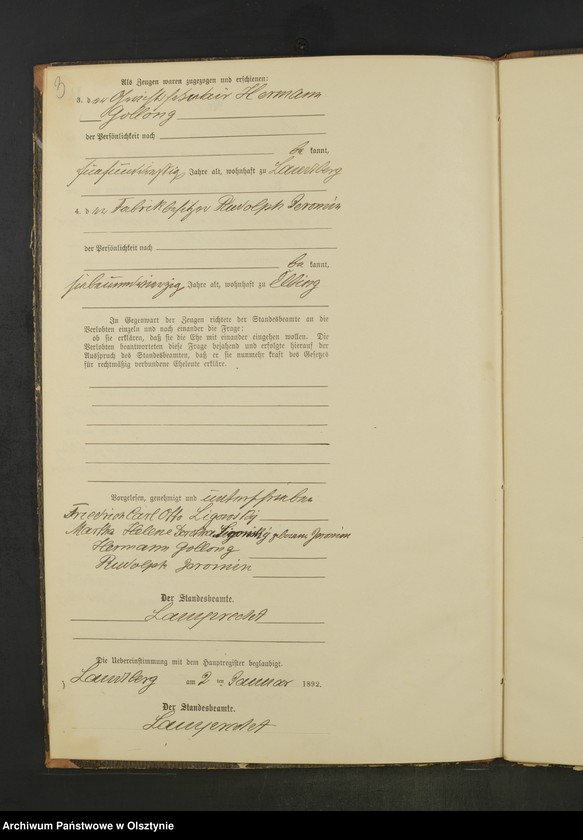 3
Als Zeugen waren zugezogen und erschienen:
3. der Gerichtssekretair Hermann
Gollong
der Persönlichkeit nach
be kannt,
fünfundvierzig Jahre alt, wohnhaft zu Landsberg
4. der Fabrikbesitzer Rudolph Jeromin
der Persönlichkeit nach
be kannt,
siebenundvierzig Jahre alt, wohnhaft zu Elbing
In Gegenwart der Zeugen richtete der Standesbeamte an die
Verlobten einzeln und nach einander die Frage:
ob sie erklären, daß sie die Ehe mit einander eingehen wollen. Die
Verlobten beantworteten diese Frage bejahend und erfolgte hierauf der
Ausspruch des Standesbeamten, daß er sie nunmehr kraft des Gesetzes
für rechtmäßig verbundene Eheleute erkläre.
Vorgelesen, genehmigt und unterschrieben
Friedrich Carl Otto Ligowsky
Martha Helene Dorothea Ligowsky geborene Jeromin
Hermann Gollong
Rudolph Jeromin
Der Standesbeamte.
Lamprecht
Die Uebereinstimmung mit dem Hauptregister beglaubigt.
Landsberg am 2ten Januar 1892.
Der Standesbeamte.
Lamprecht
Archiwum Państwowe w Olsztynie